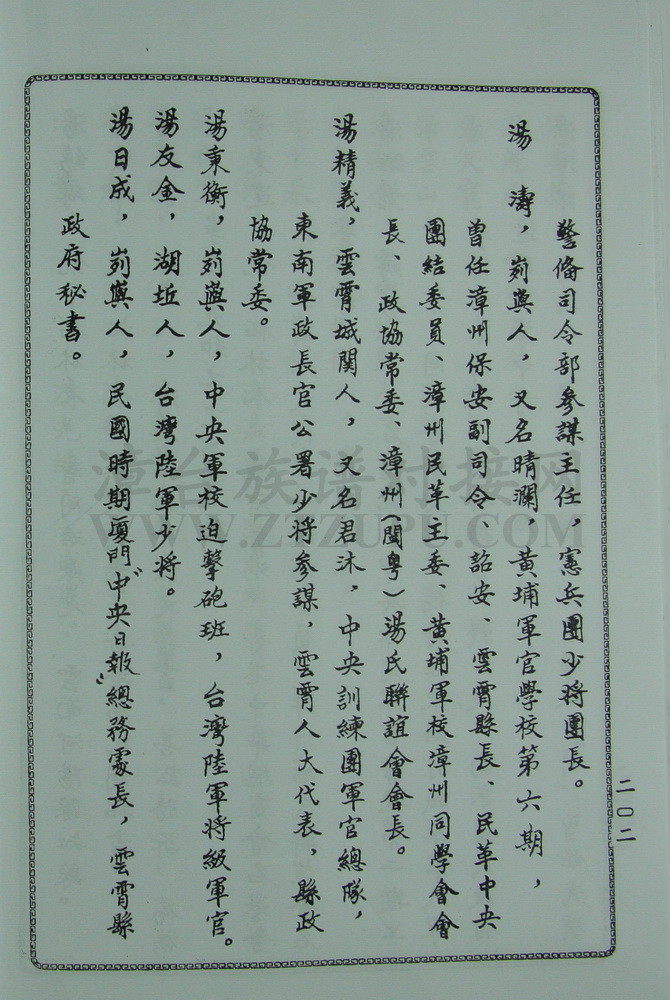 警備司令部參謀主任，憲兵團少將團長。
湯　濤，峛嶼人，又名晴瀾，黃埔軍官學校第六期，
曾任漳州保安副司令、詔安、雲霄縣長、民革中央
團結委員、漳州民革主委、黃埔軍校漳州同學會會
長、政協常委、漳州（閩粵）湯氏聯誼會會長。
湯精義，雲霄城關人，又名君沐，中央訓練團軍官總隊，
東南軍政長官公署少將參謀，雲霄人大代表，縣政
協常委。
湯秉衡，峛嶼人，中央軍校迫擊砲班，台灣陸軍将級軍官。
湯友金，湖坵人，台灣陸軍少将。
湯日成，峛嶼人，民國時期廈門“中央日報”總務處長，雲霄縣
政府秘書。
二〇二
漳台族谱对接网
WWW.ZTZUPU.COM